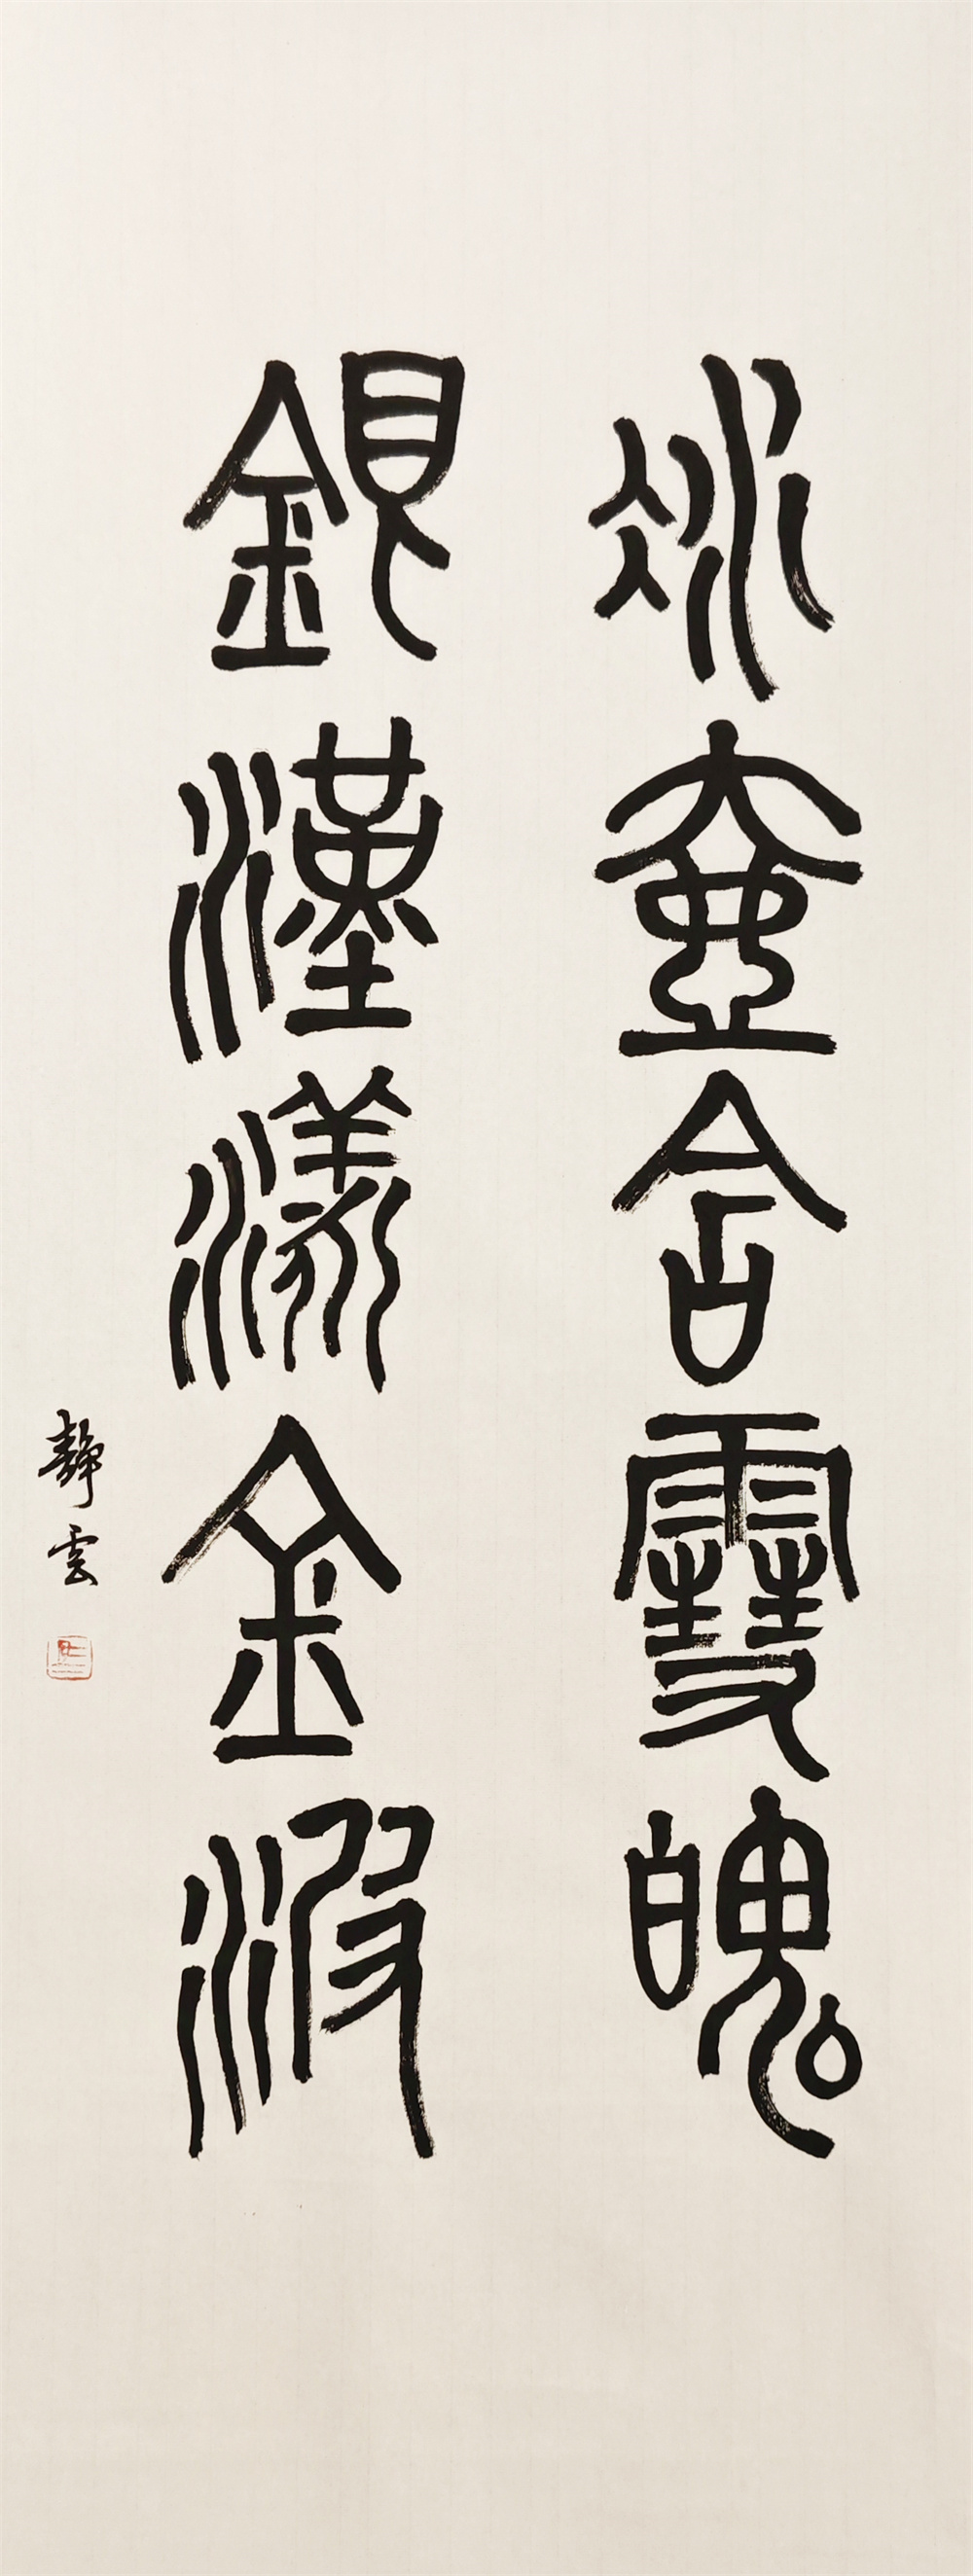 冰壺含雪魄
銀漢漾金波
靜雲